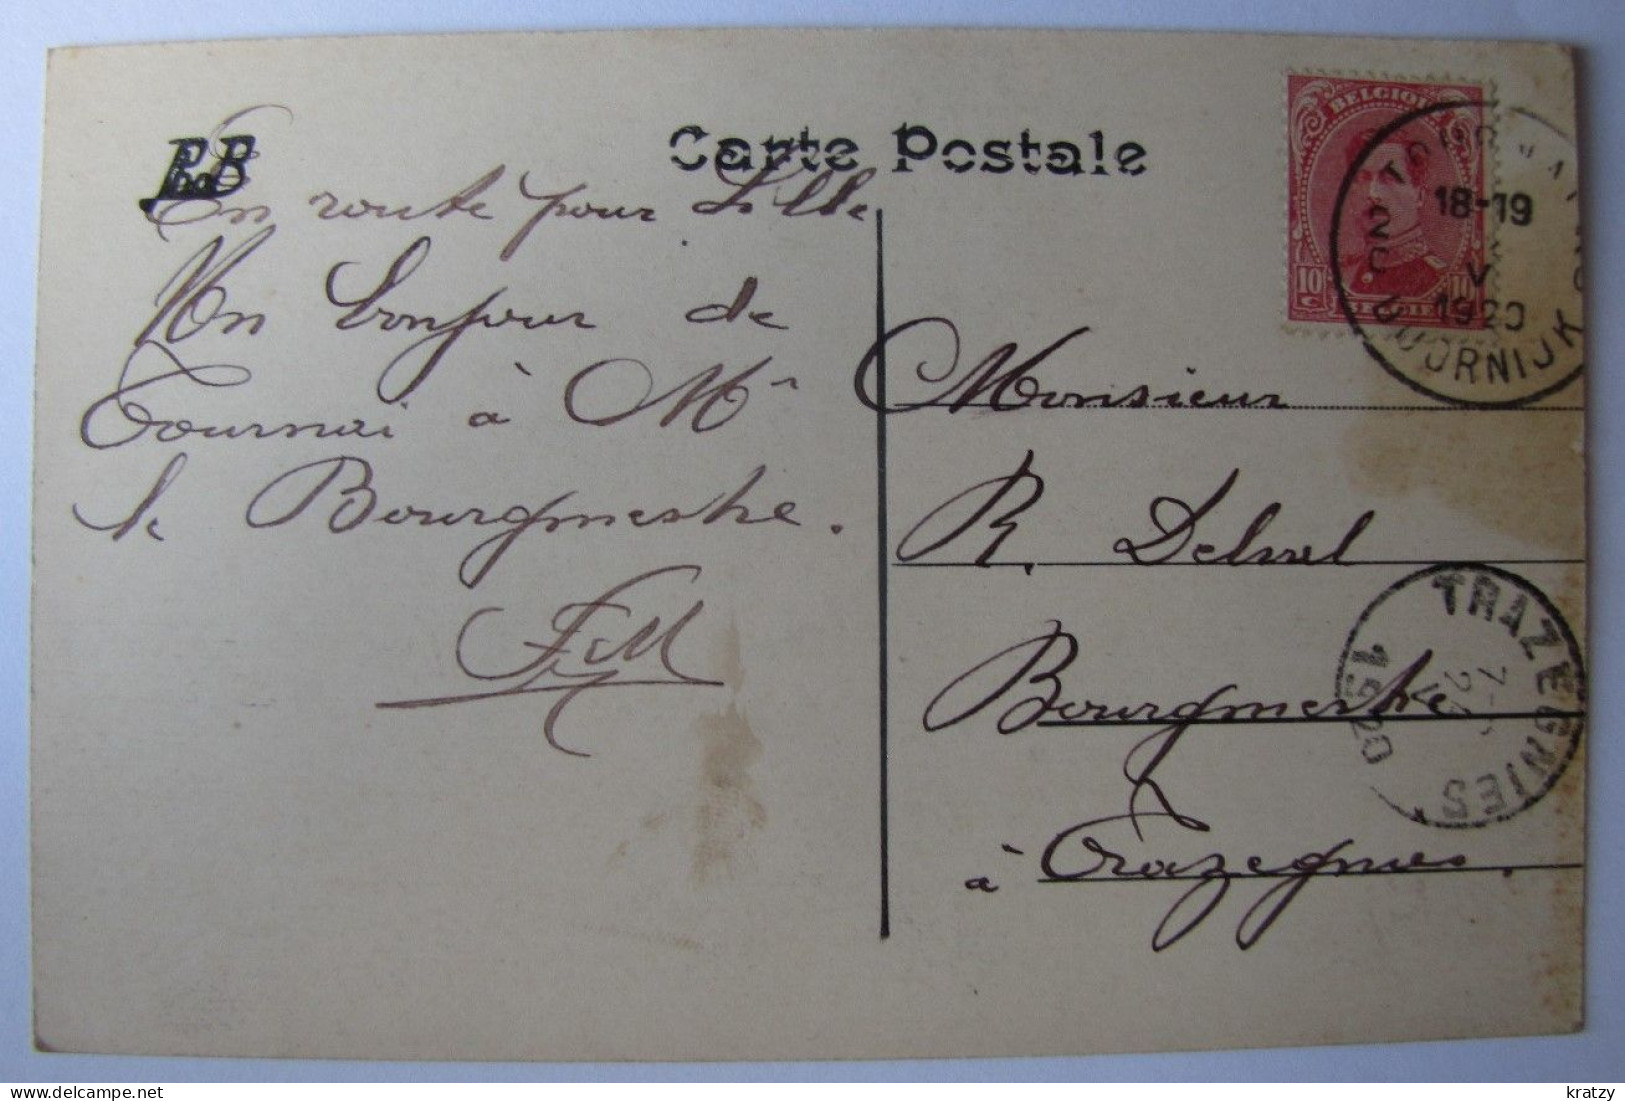 Carte Postale
En route pour Lille
Un bonjour de
Tournai à Mr
le Bourgmestre.
FM
BELGIQUE
10 C
10
BELGIE
18-19
V
1920
DOORNIJK
Monsieur
R. Delval
Bourgmestre
à Trazegnies.
TRAZEGNIES
1920
kratzy